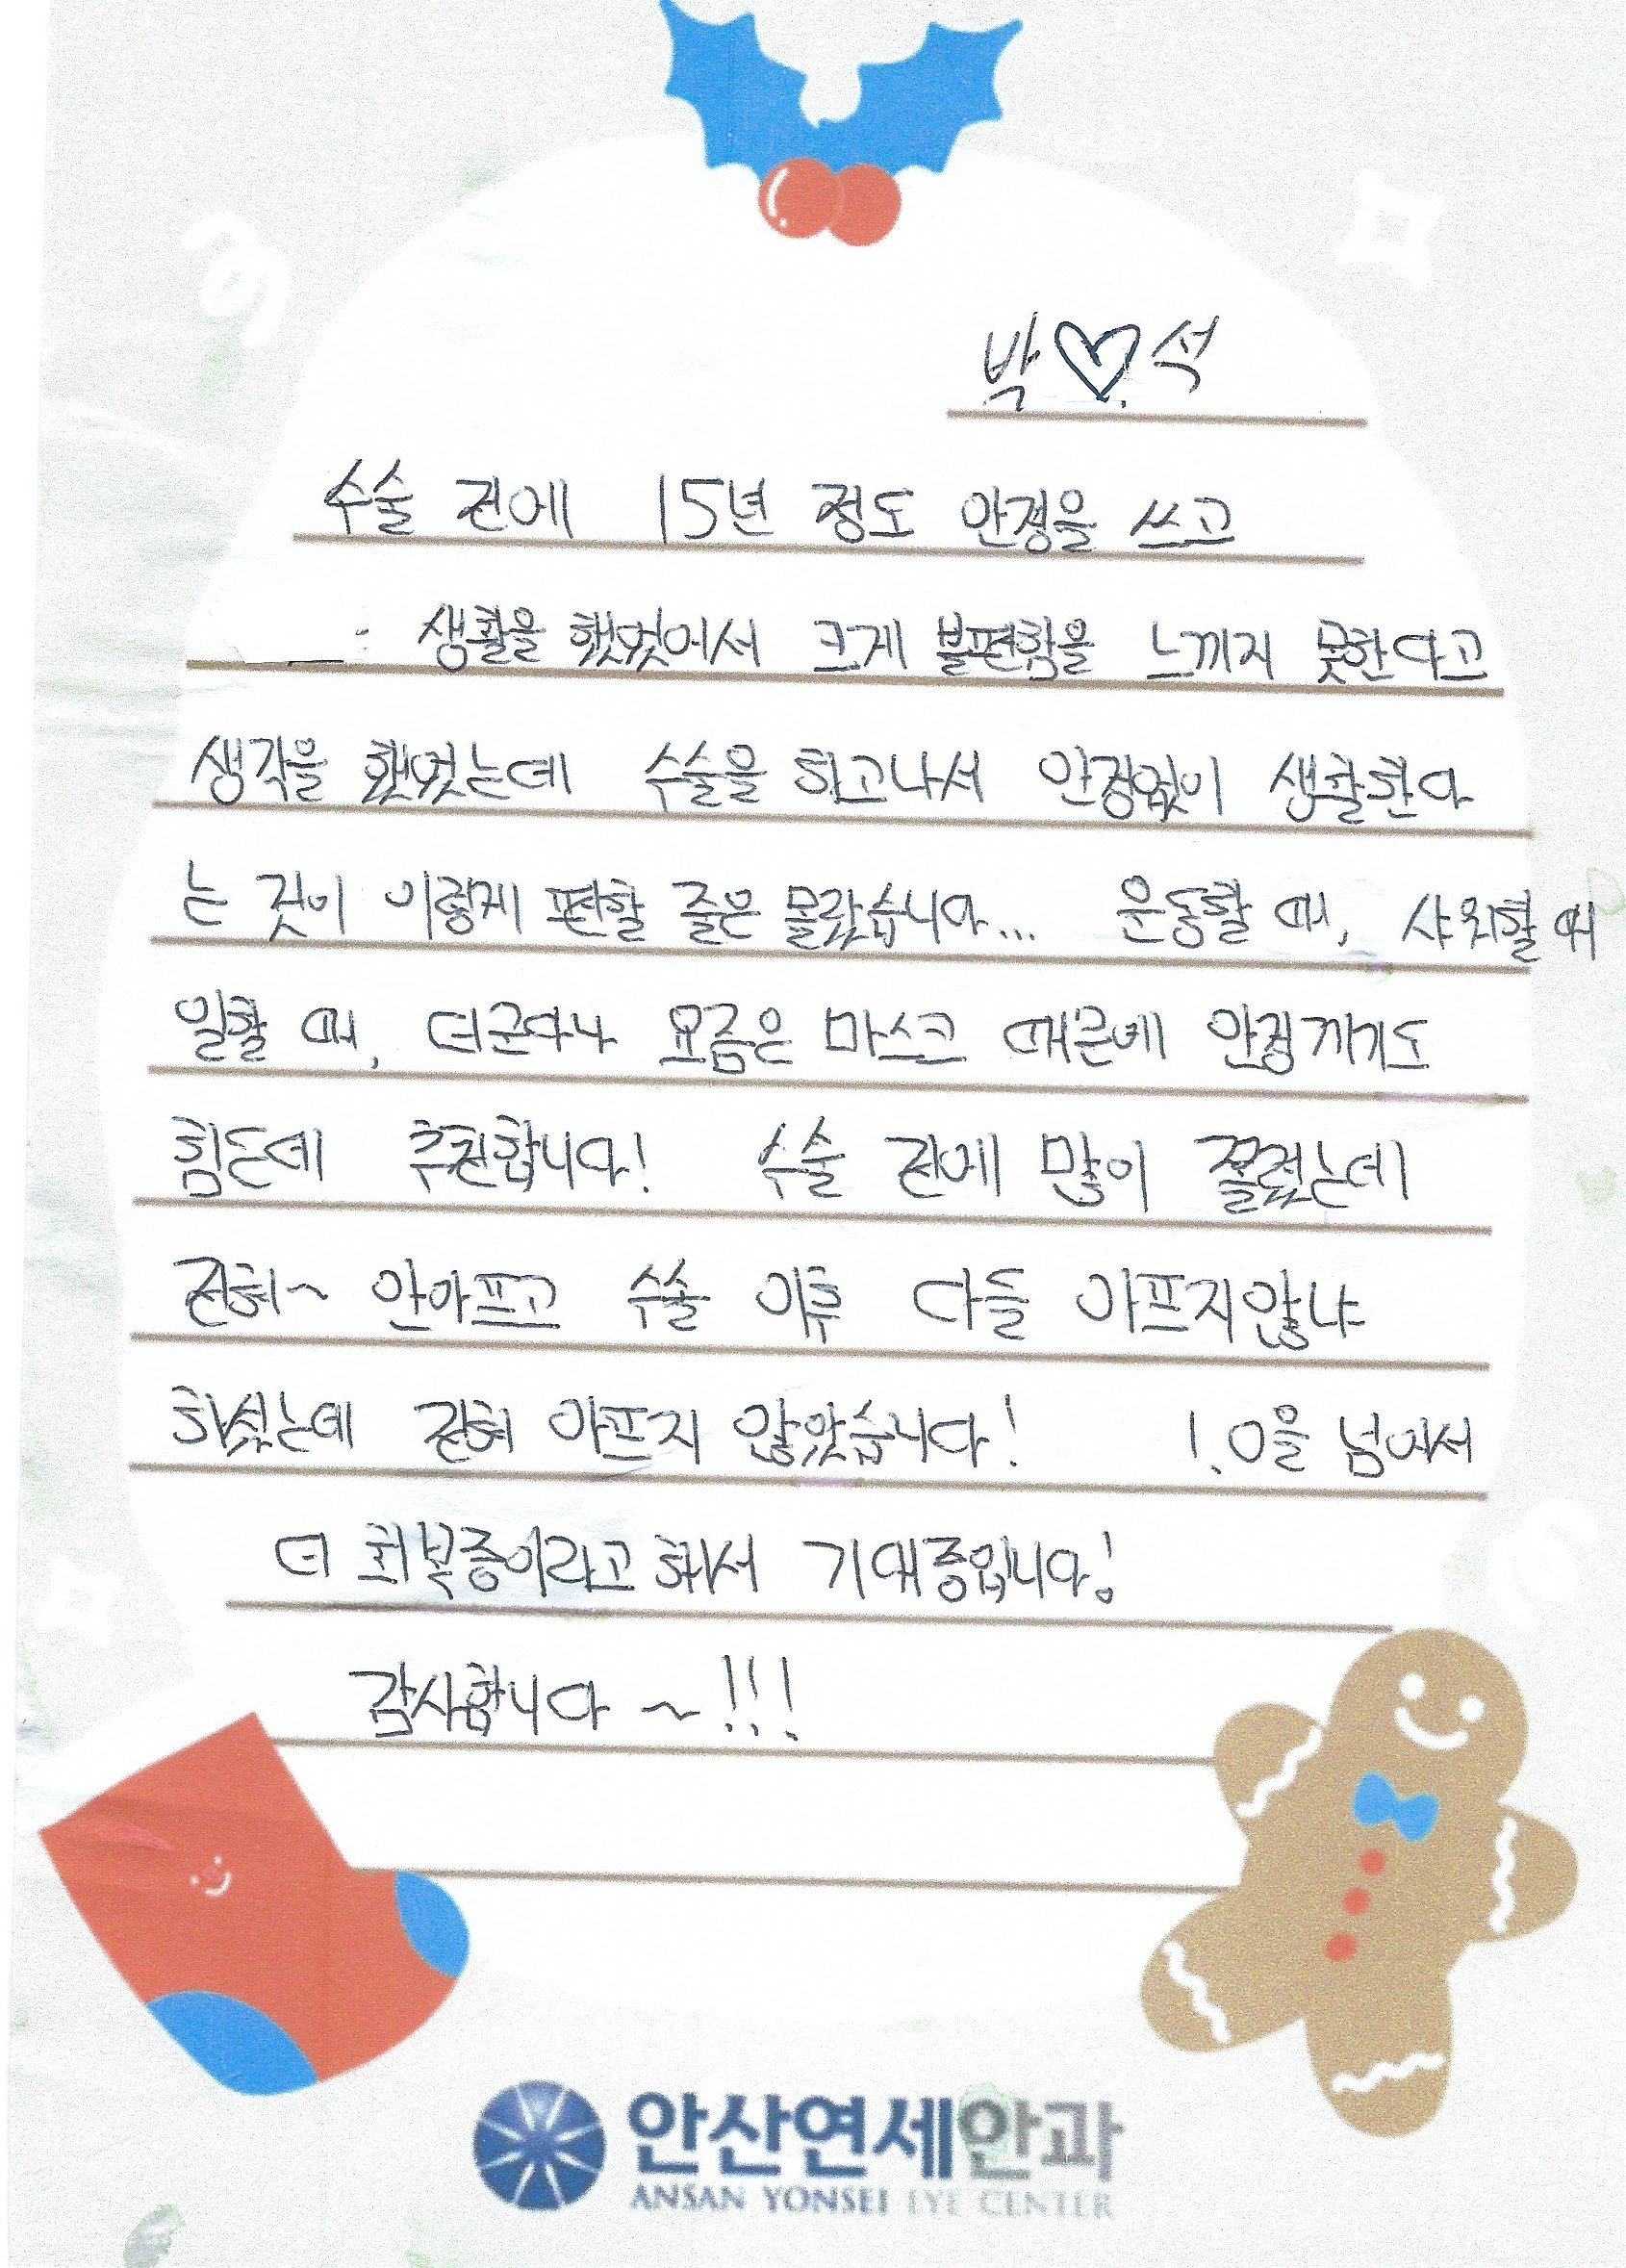 박♡석
수술 전에 15년 정도 안경을 쓰고
생활을 했었어서 크게 불편함을 느끼지 못한다고
생각을 했었는데 수술을 하고나서 안경없이 생활한다
는 것이 이렇게 편할 줄은 몰랐습니다... 운동할 때, 샤워할 때
일할 때, 더군다나 요즘은 마스크 때문에 안경끼기도
힘든데 추천합니다! 수술 전에 많이 쫄렸는데
전혀~ 안아프고 수술 이후 다들 아프지않냐
하셨는데 전혀 아프지 않았습니다! 1.0을 넘어서
더 회복중이라고 해서 기대중입니다!
감사합니다 ~!!!
안산연세안과
ANSAN YONSEI EYE CENTER